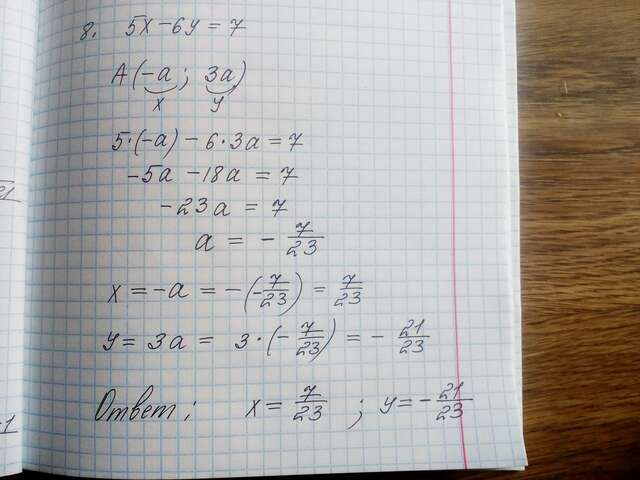 8. 5x - 6y = 7
A(-a; 3a)
x y
5·(-a) - 6·3a = 7
-5a - 18a = 7
-23a = 7
a = - 7/23
x = -a = -(-7/23) = 7/23
y = 3a = 3·(-7/23) = - 21/23
Ответ: x = 7/23 ; y = - 21/23
21
-1